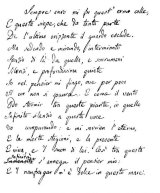 Sempre caro mi fu quest' ermo colle,
E questa siepe, che da tanta parte
De l'ultimo orizzonte il guardo esclude.
Ma sedendo e mirando, interminato
Spazio di là da quella, e sovrumani
Silenzi, e profondissima quiete
Io nel pensier mi fingo, ove per poco
Il cor non si spaura. E come il vento
Odo stormir tra queste piante, io quello
Infinito silenzio a questa voce
Vo comparando: e mi sovvien l'eterno,
E le morte stagioni, e la presente
E viva, e 'l suon di lei. Così tra questa
s'annega il pensier mio:
E 'l naufragar m'è dolce in questo mare.